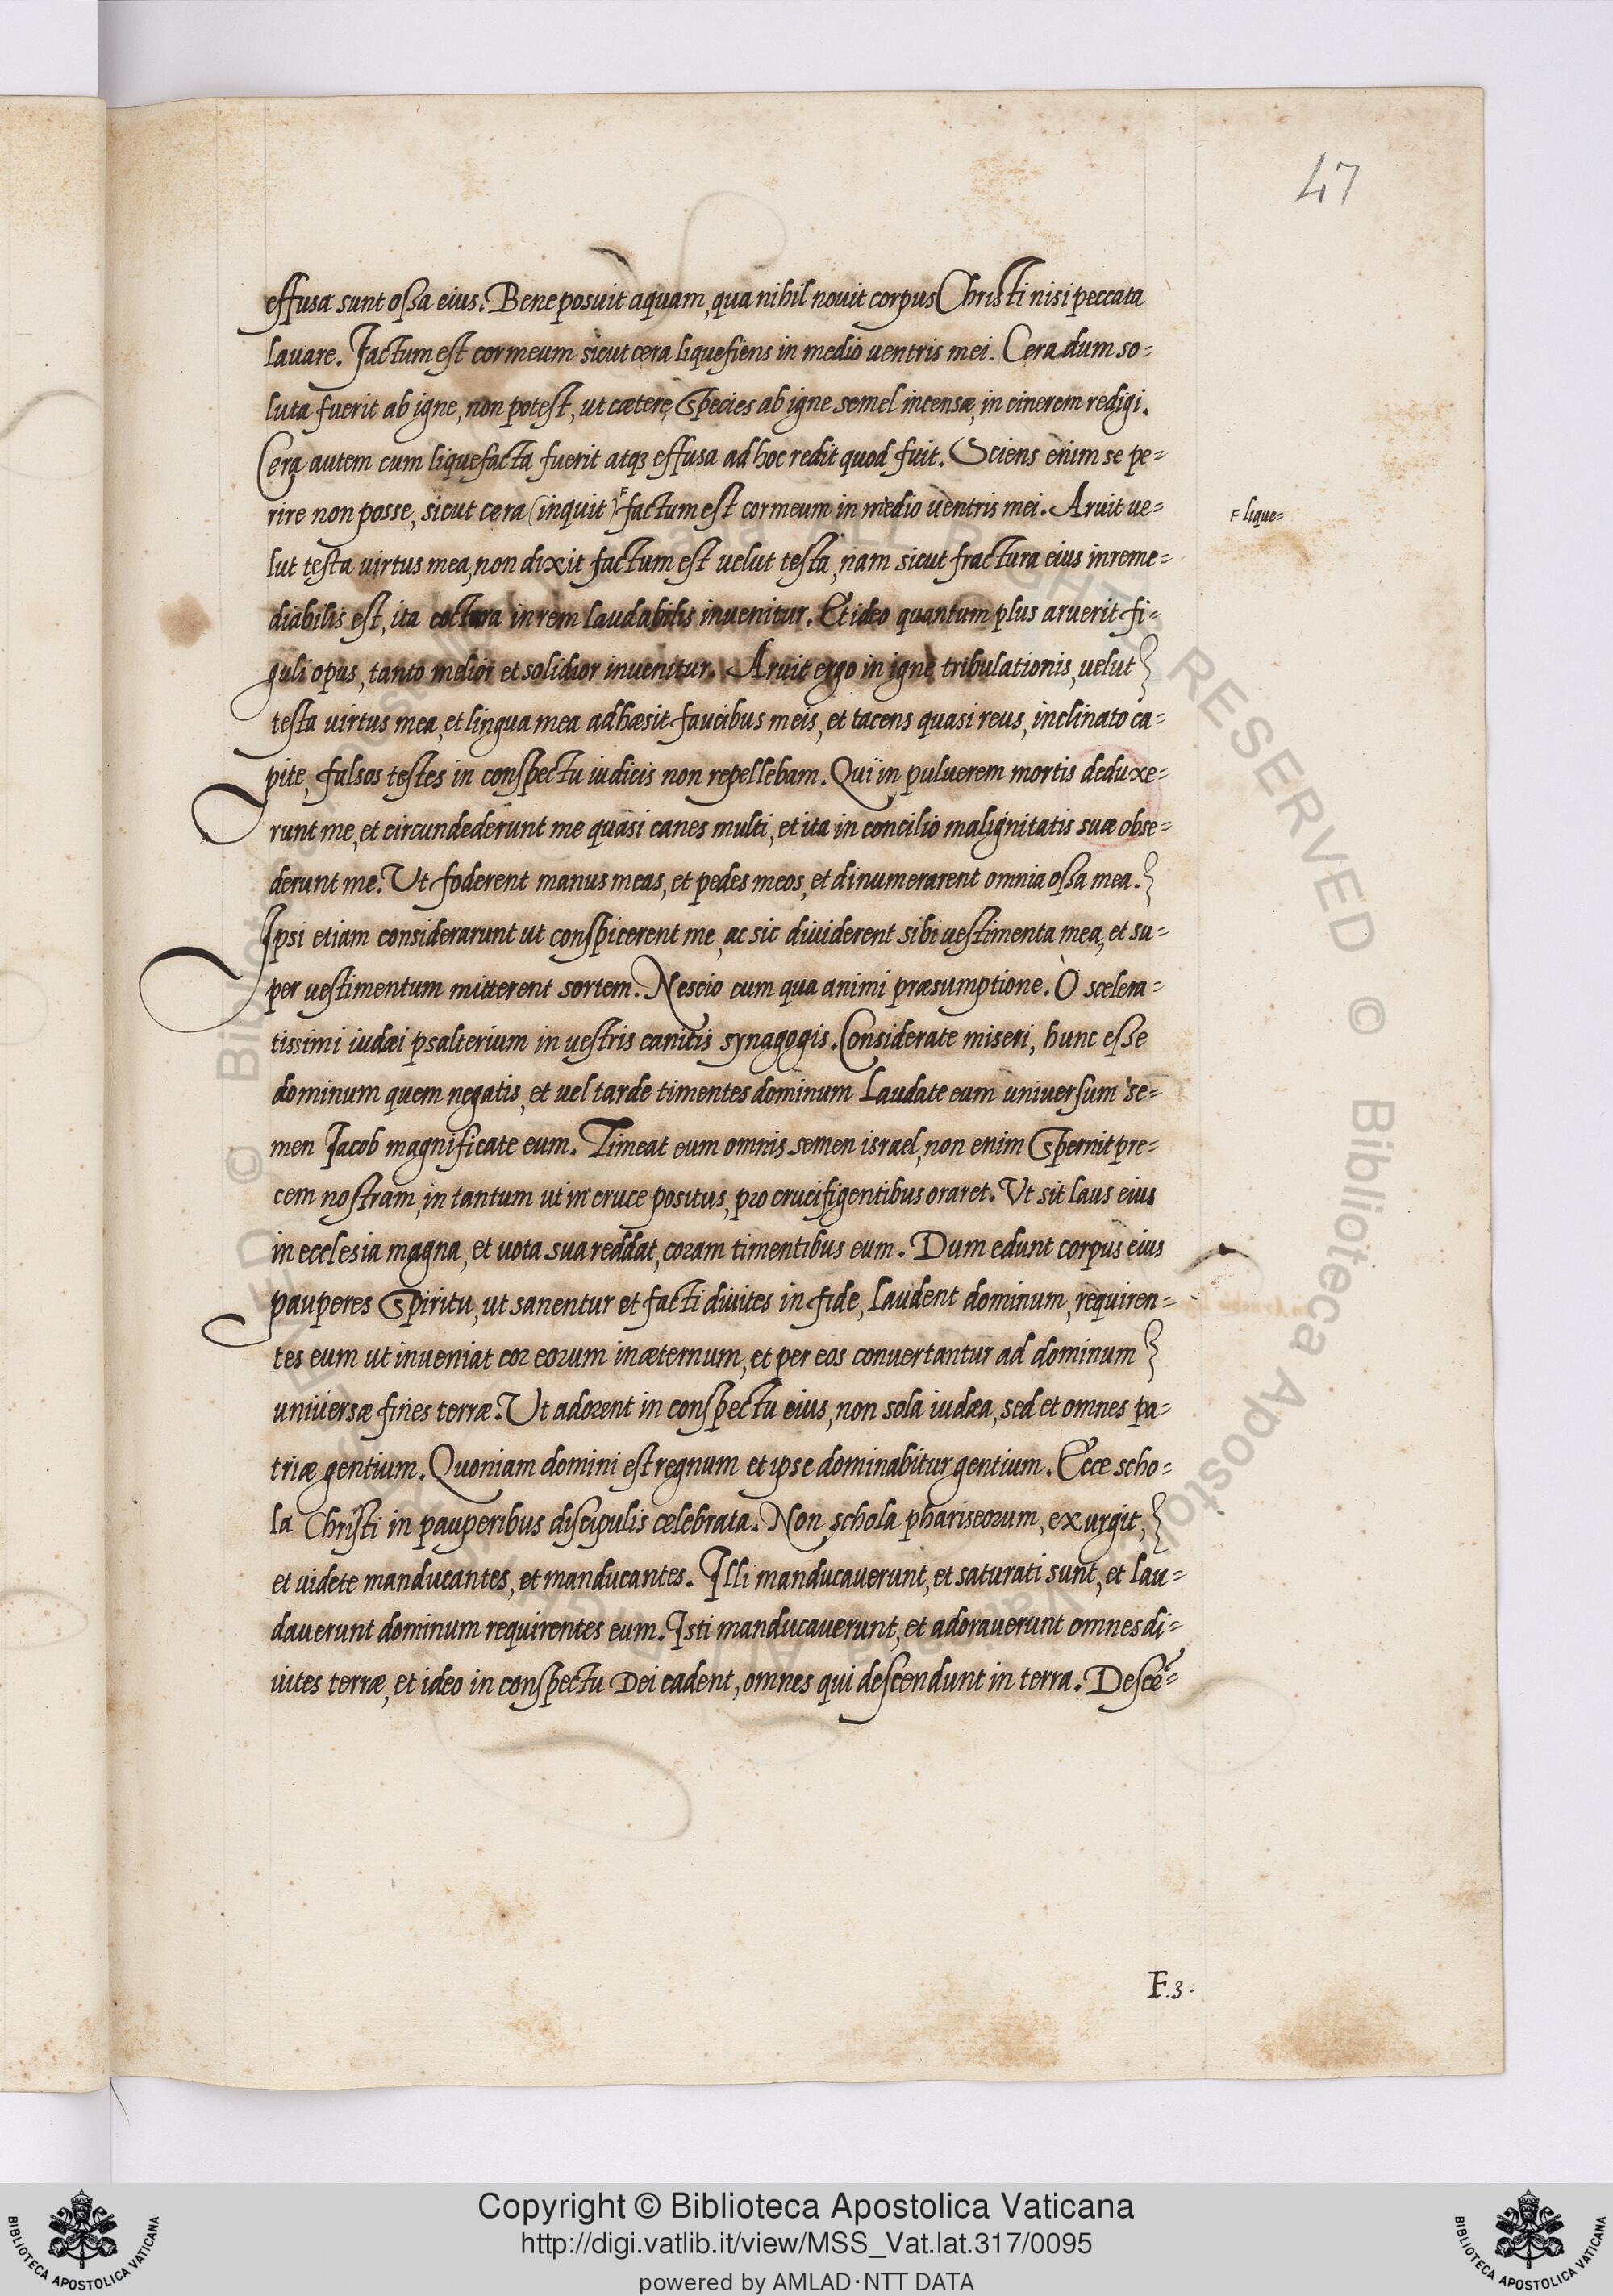 47
effusa sunt ossa eius. Bene posuit aquam, qua nihil nouit corpus Christi nisi peccata
lauare. Factum est cor meum sicut cera liquefiens in medio uentris mei. Cera dum so=
luta fuerit ab igne, non potest, ut cæterę species ab igne semel incensæ, in cinerem redigi.
Cera autem cum liquefacta fuerit atq3 effusa ad hoc redit quod fuit. Sciens enim se pe=
rire non posse, sicut cera (inquit) F factum est cor meum in medio uentris mei. Aruit ue=
F lique=
lut testa virtus mea, non dixit factum est uelut testa, nam sicut fractura eius inreme=
diabilis est, ita coctura in rem laudabilis inuenitur. Et ideo quantum plus aruerit fi=
guli opus, tanto melior et solidior inuenitur. Aruit ergo in igne tribulationis, uelut
testa uirtus mea, et lingua mea adhæsit faucibus meis, et tacens quasi reus, inclinato ca=
pite, falsos testes in conspectu iudicis non repellebam. Qui in puluerem mortis deduxe=
runt me, et circundederunt me quasi canes multi, et ita in concilio malignitatis suæ obse=
derunt me. Ut foderent manus meas, et pedes meos, et dinumerarent omnia ossa mea.
Ipsi etiam considerarunt ut conspicerent me, ac sic diuiderent sibi uestimenta mea, et su=
per uestimentum mitterent sortem. Nescio cum qua animi præsumptione. O scelera=
tissimi iudæi psalterium in uestris canitis synagogis. Considerate miseri, hunc esse
dominum quem negatis, et uel tarde timentes dominum Laudate eum uniuersum se=
men Jacob magnificate eum. Timeat eum omnis semen israel, non enim spernit pre=
cem nostram, in tantum ut in cruce positus, pro crucifigentibus oraret. Ut sit laus eius
in ecclesia magna, et uota sua reddat, coram timentibus eum. Dum edunt corpus eius
pauperes spiritu, ut sanentur et facti diuites in fide, laudent dominum, requiren=
tes eum ut inueniat cor eorum in æternum, et per eos conuertantur ad dominum
uniuersæ fines terræ. Ut adorent in conspectu eius, non sola iudæa, sed et omnes pa=
triæ gentium. Quoniam domini est regnum et ipse dominabitur gentium. Ecce scho=
la Christi in pauperibus discipulis celebrata. Non schola phariseorum, exurgit,
et uidete manducantes, et manducantes. Illi manducauerunt, et saturati sunt, et lau=
dauerunt dominum requirentes eum. Isti manducauerunt, et adorauerunt omnes di=
uites terræ, et ideo in conspectu Dei cadent, omnes qui descendunt in terra. Descē=
F.3.
Copyright © Biblioteca Apostolica Vaticana
http://digi.vatlib.it/view/MSS_Vat.lat.317/0095
powered by AMLAD·NTT DATA
BIBLIOTECA APOSTOLICA VATICANA
BIBLIOTECA APOSTOLICA VATICANA